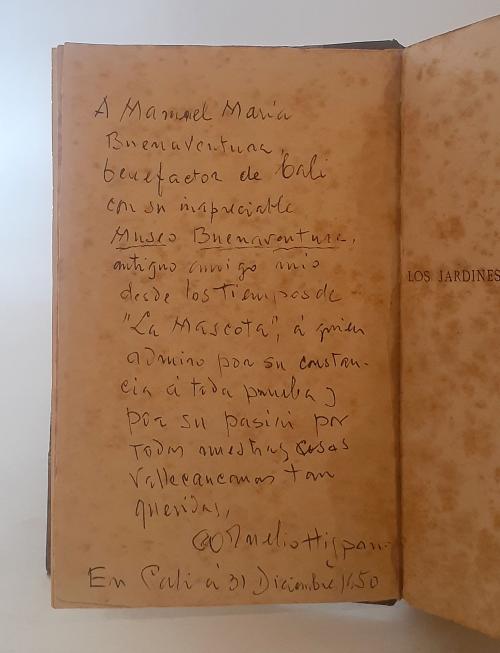 A Manuel María
Buenaventura,
benefactor de Cali
con su inapreciable
Museo Buenaventura,
antiguo amigo mío
desde los tiempos de
"La Mascota", á quien
admiro por su constan-
cia á toda prueba y
por su pasión por
todas nuestras cosas
vallecaucanas tan
queridas,
Cornelio Hispano
En Cali á 31 Diciembre 1950
LOS JARDINES